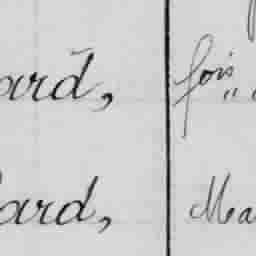 ard, fois
„
ard, Ma